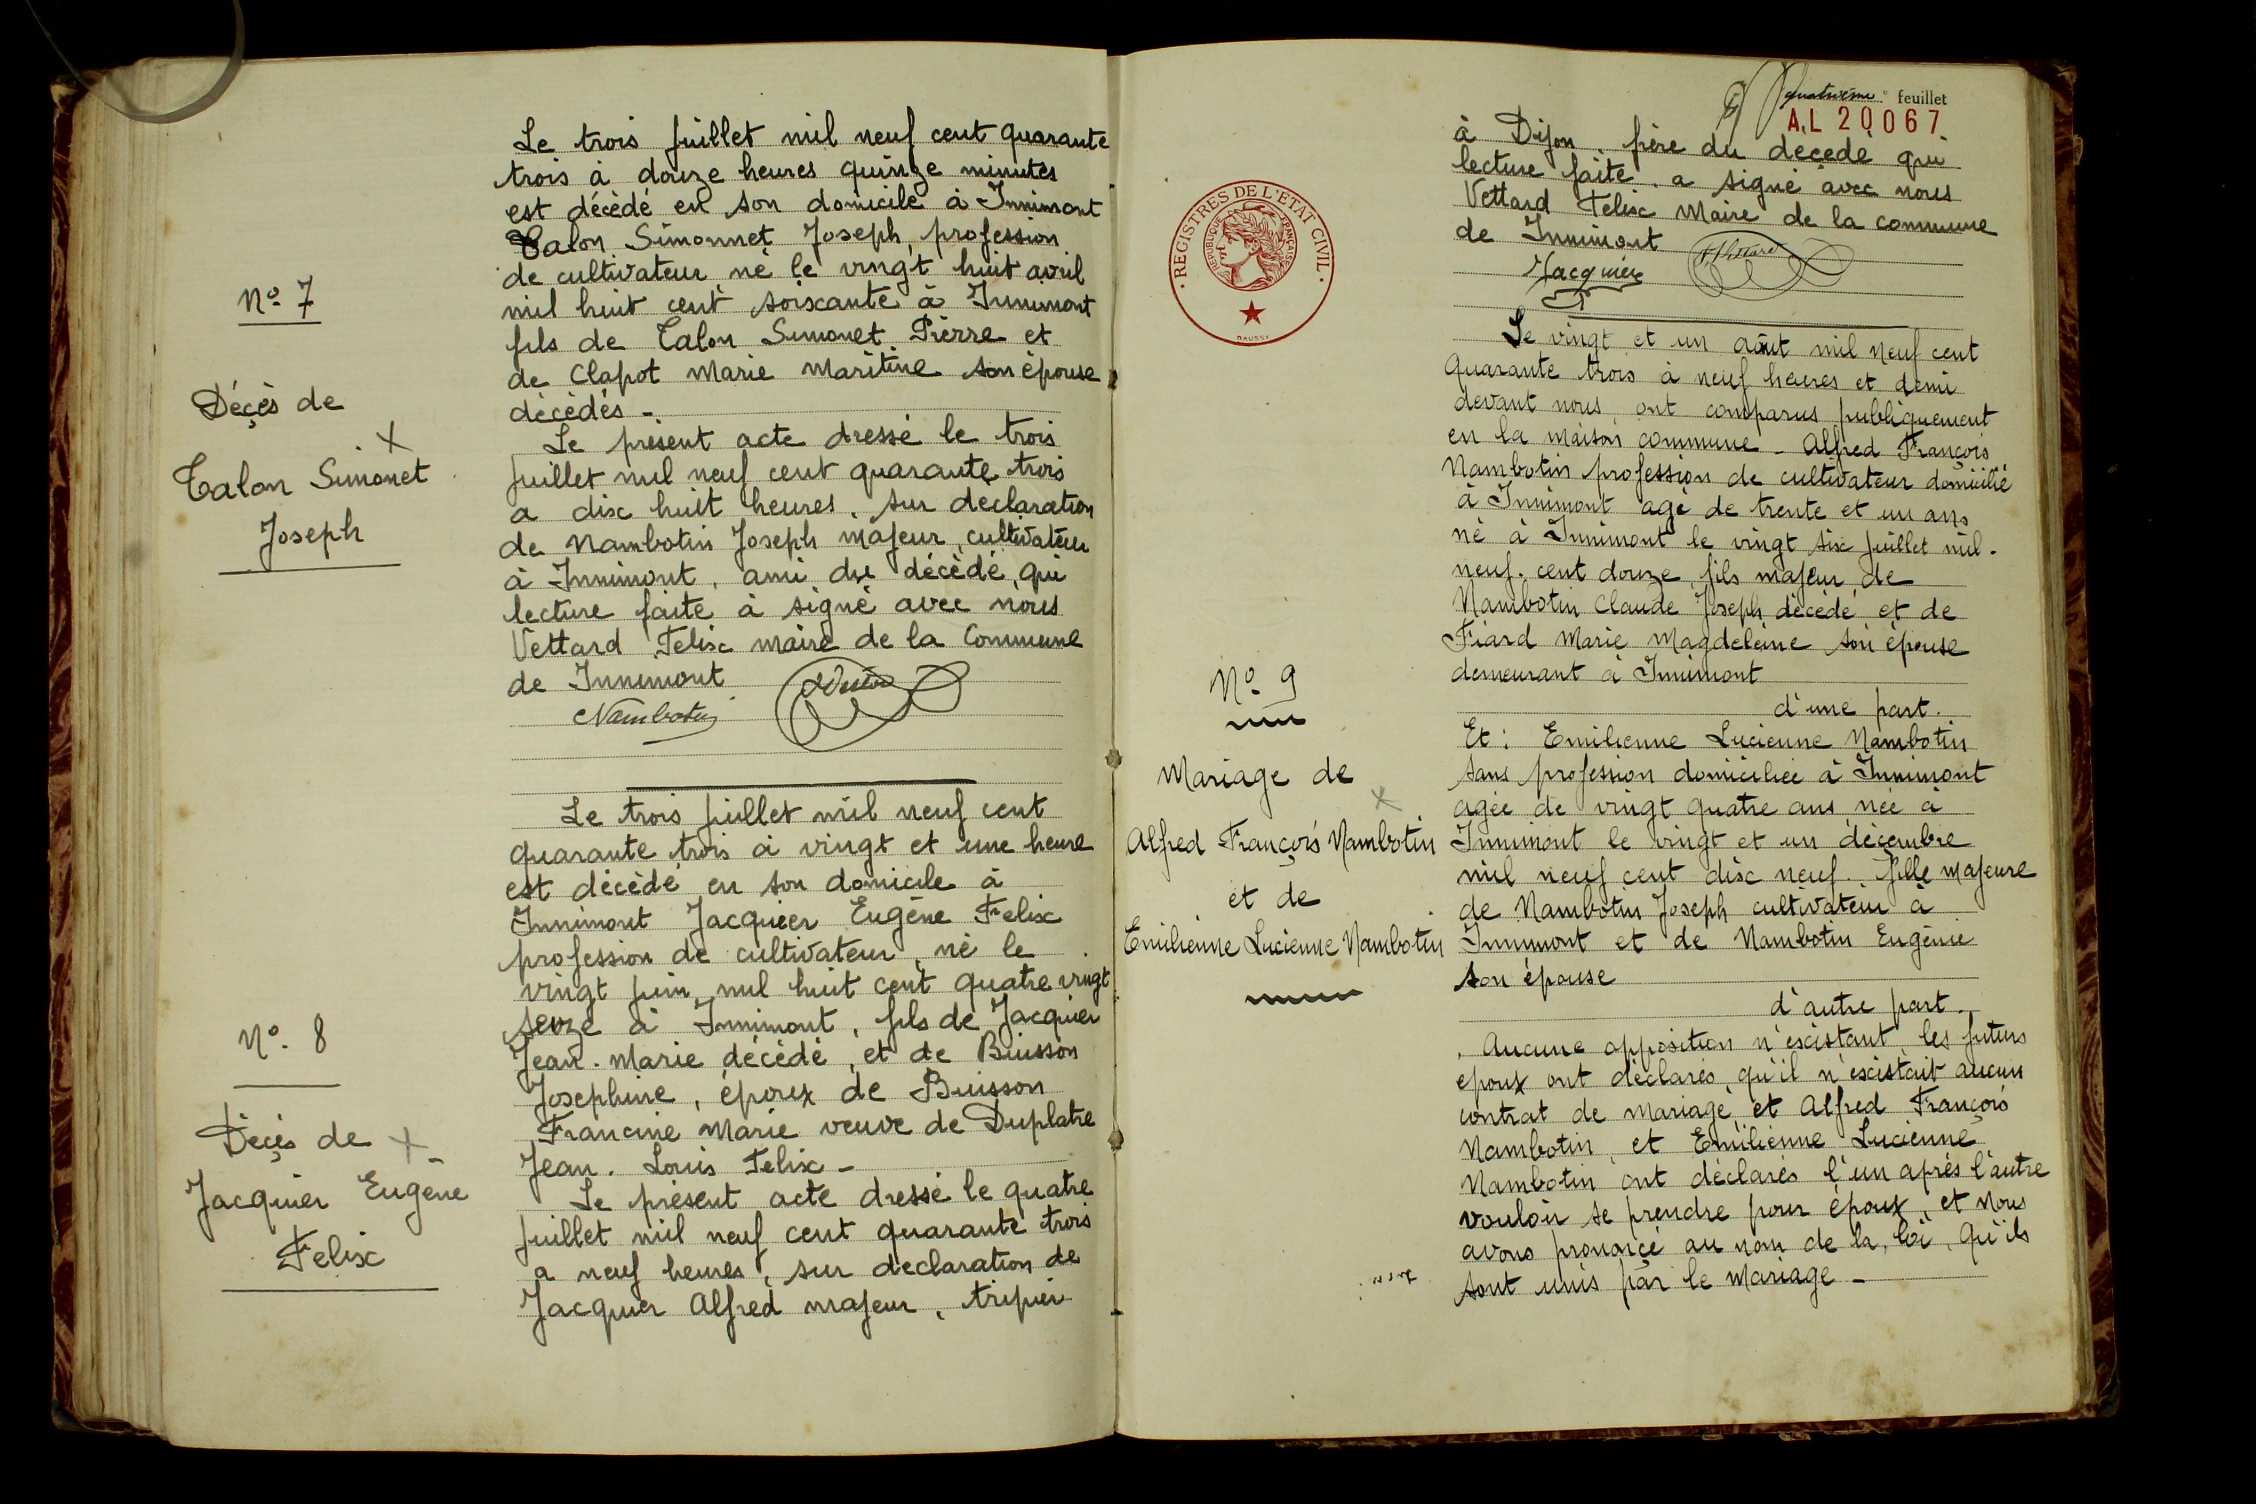 Nº 7
Décès de
Talon Simonet
Joseph
Le trois juillet mil neuf cent quarante
trois à douze heures quinze minutes
est décédé en son domicile à Innimont
Talon Simonnet Joseph, profession
de cultivateur né le vingt huit avril
mil huit cent soixante à Innimont
fils de Talon Simonet Pierre et
de Clapot Marie Maritine son épouse
décédés -
Le présent acte dressé le trois
juillet mil neuf cent quarante trois
a dix huit heures, sur declaration
de Nambotin Joseph majeur, cultivateur
à Innimont, ami du décédé, qui
lecture faite à signé avec nous
Vettard Felix maire de la Commune
de Innimont
Nambotin
Nº 8
Décès de
Jacquier Eugène
Felix
Le trois juillet mil neuf cent
quarante trois à vingt et une heure
est décédé en son domicile à
Innimont Jacquier Eugène Felix
profession de cultivateur, né le
vingt juin mil huit cent quatre vingt
seize à Innimont, fils de Jacquier
Jean-Marie décédé, et de Buisson
Josephine, époux de Buisson
Francine Marie veuve de Duplatre
Jean-Louis Felix -
Le présent acte dressé le quatre
juillet mil neuf cent quarante trois
a neuf heures, sur declaration de
Jacquier Alfred majeur, tripier
quatrième feuillet
AL 20067
REGISTRES DE L'ÉTAT CIVIL
RÉPUBLIQUE FRANÇAISE
à Dijon, frère du décédé qui
lecture faite, a signé avec nous
Vettard Felix Maire de la commune
de Innimont
Jacquier
Nº 9
Mariage de
Alfred François Nambotin
et de
Emilienne Lucienne Nambotin
Le vingt et un août mil neuf cent
quarante trois à neuf heures et demi
devant nous, ont comparus publiquement
en la maison commune - Alfred François
Nambotin profession de cultivateur domicilié
à Innimont agé de trente et un ans
né à Innimont le vingt six juillet mil-
neuf-cent douze, fils majeur de
Nambotin Claude Joseph décédé et de
Fiard Marie Magdeleine son épouse
demeurant à Innimont
d'une part.
Et: Emilienne Lucienne Nambotin
sans profession domiciliée à Innimont
agée de vingt quatre ans née à
Innimont le vingt et un décembre
mil neuf cent dix neuf. fille majeure
de Nambotin Joseph cultivateur à
Innimont et de Nambotin Eugénie
son épouse
d'autre part.
Aucune opposition n'existant, les futurs
époux ont déclarés, qu'il n'existait aucun
contrat de mariage et Alfred François
Nambotin, et Emilienne Lucienne
Nambotin ont déclarés l'un après l'autre
vouloir se prendre pour époux, et nous
avons prononcé au nom de la loi, qu'ils
sont unis par le mariage -